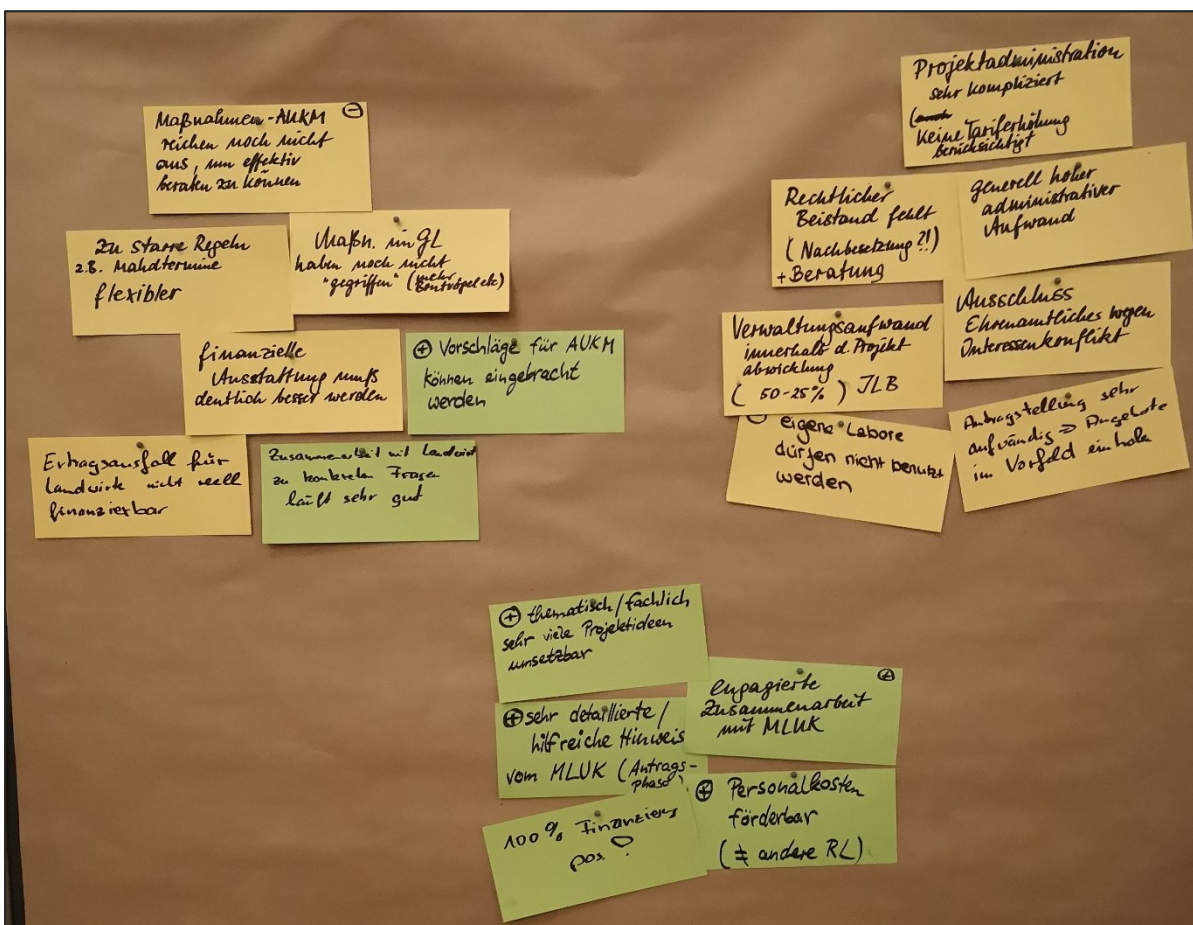 Maßnahmen-AUKM ⊖
reichen noch nicht
aus, um effektiv
beraten zu können
Zu starre Regeln
z.B. Mahdtermine
flexibler
Maßn. im GL
haben noch nicht
"gegriffen" (mehr
Brutvögel etc)
finanzielle
Ausstattung muß
deutlich besser werden
⊕ Vorschläge für AUKM
können eingebracht
werden
Ertragsausfall für
Landwirte nicht reell
finanzierbar
Zusammenarbeit mit Landwirt
zu konkreten Fragen
läuft sehr gut
Projektadministration
sehr kompliziert
Keine Tariferhöhung
berücksichtigt
Rechtlicher
Beistand fehlt
(Nachbesetzung?!)
+ Beratung
generell hoher
administrativer
Aufwand
Verwaltungsaufwand
innerhalb d. Projekt
abwicklung
(50-25%) ILB
Ausschluss
Ehrenamtliches wegen
Interessenkonflikt
⊖ eigene Labore
dürfen nicht benutzt
werden
Antragstellung sehr
aufwändig => Angebote
im Vorfeld einholen
⊕ thematisch/fachlich
sehr viele Projektideen
umsetzbar
⊕ sehr detaillierte/
hilfreiche Hinweis
vom MLUK (Antrags-
phase)
engagierte
Zusammenarbeit
mit MLUK
100% Finanzierung
pos.
⊕ Personalkosten
förderbar
(≠ andere RL)